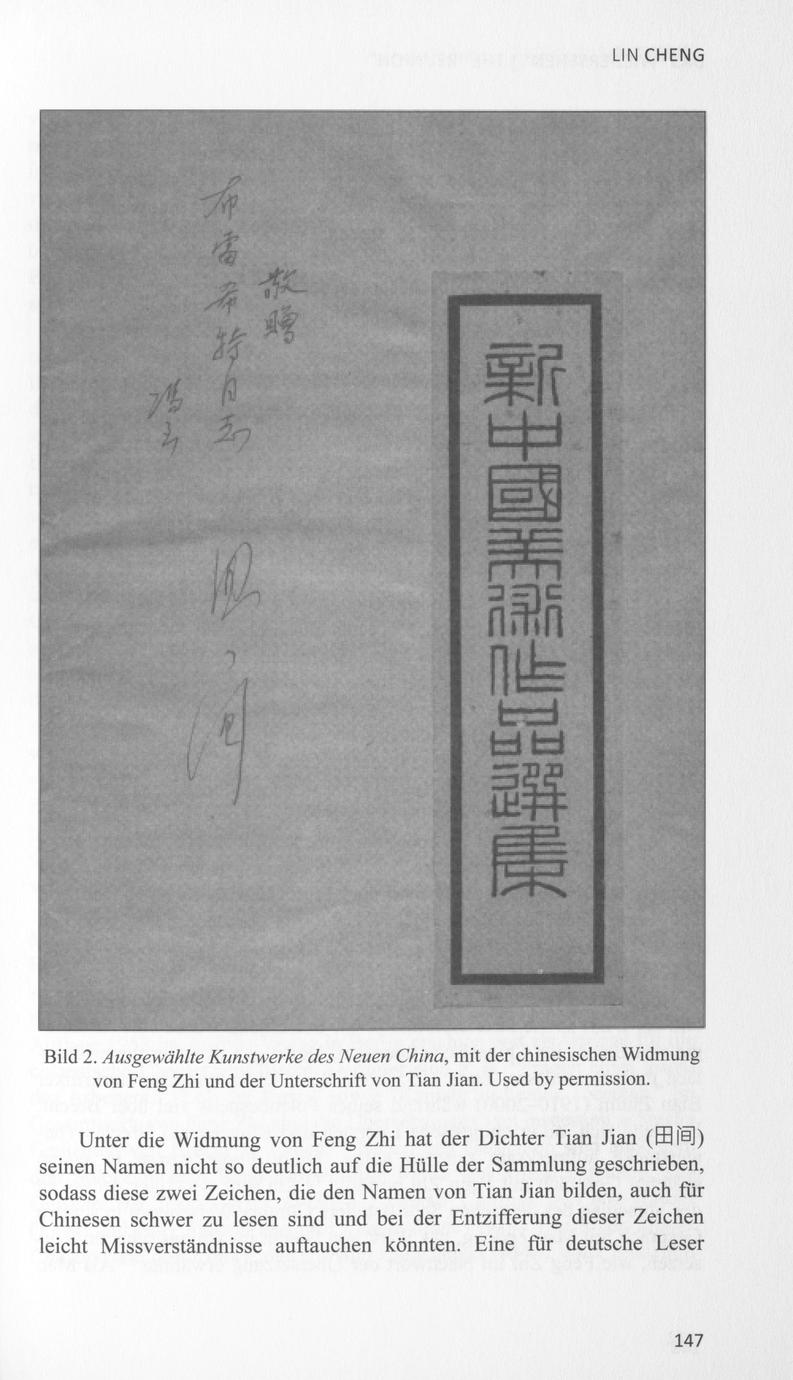 LIN CHENG
新中國美術作品選集
敬贈
布雷希特同志
馮至
Bild 2. Ausgewählte Kunstwerke des Neuen China, mit der chinesischen Widmung
von Feng Zhi und der Unterschrift von Tian Jian. Used by permission.
Unter die Widmung von Feng Zhi hat der Dichter Tian Jian (田间)
seinen Namen nicht so deutlich auf die Hülle der Sammlung geschrieben,
sodass diese zwei Zeichen, die den Namen von Tian Jian bilden, auch für
Chinesen schwer zu lesen sind und bei der Entzifferung dieser Zeichen
leicht Missverständnisse auftauchen könnten. Eine für deutsche Leser
147